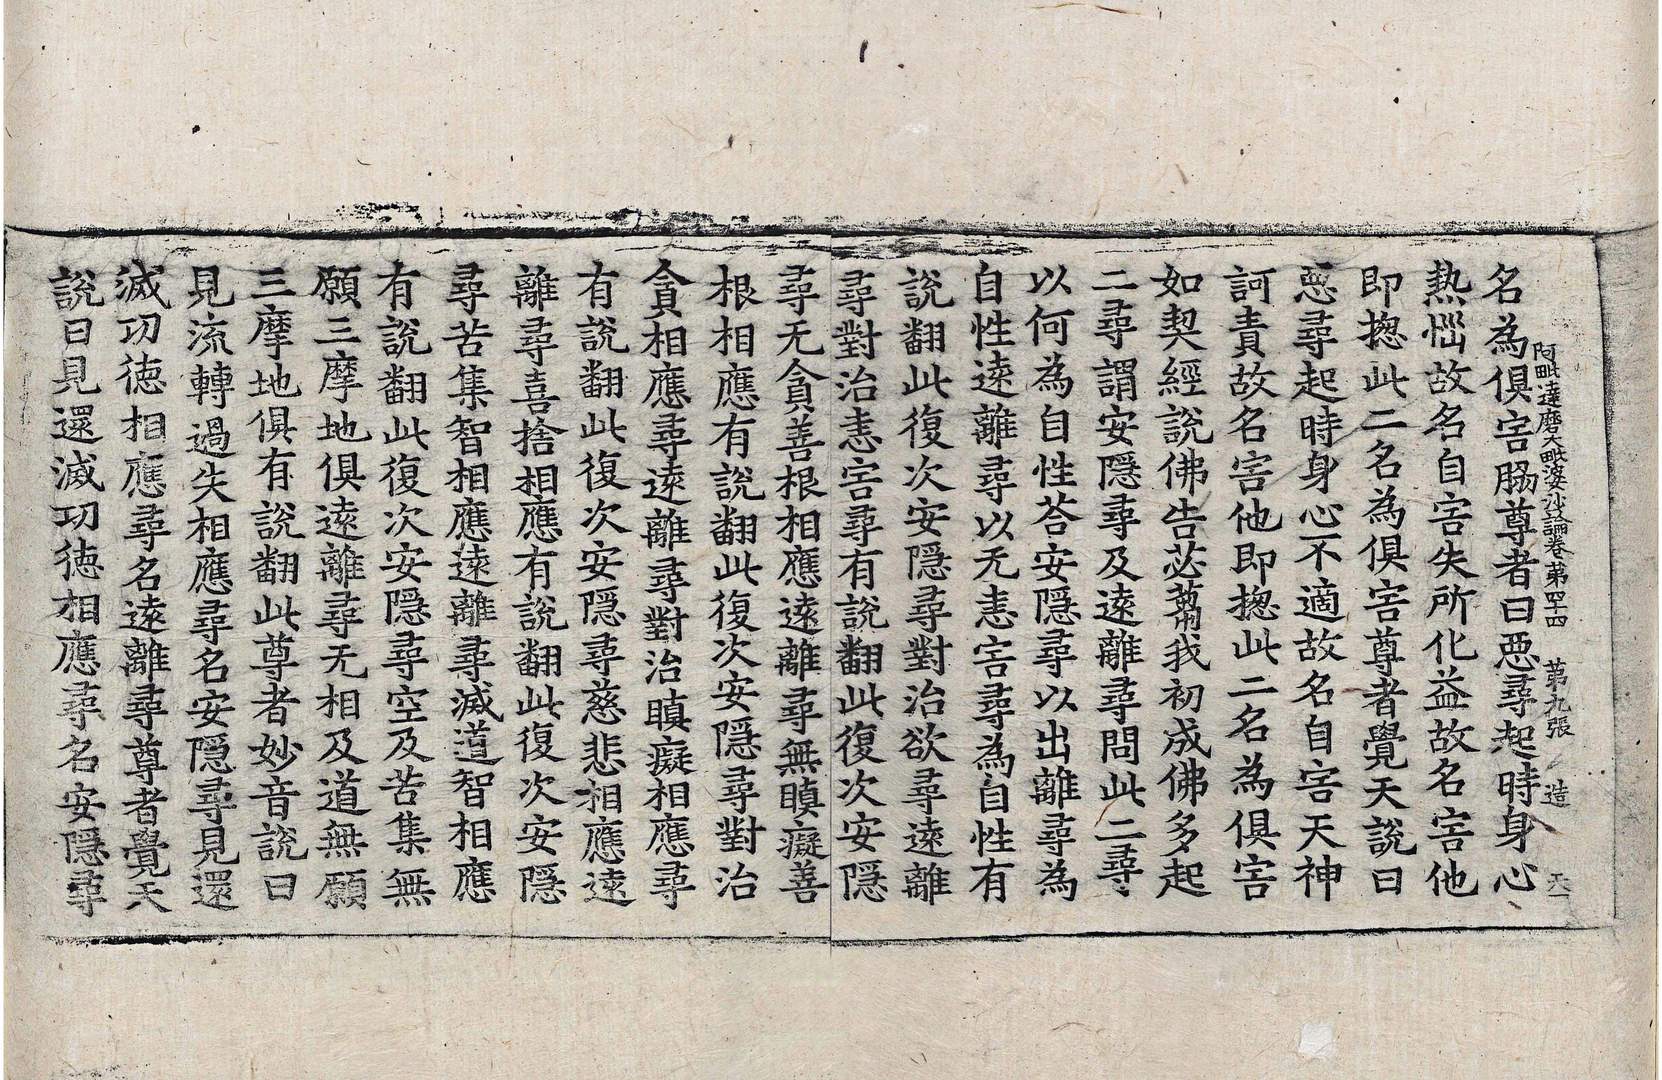 阿毗達磨大毗婆沙論卷第四十四 第九張 造 天一
名為俱害脇尊者曰惡尋起時身心
熱惱故名自害失所化益故名害他
即揔此二名為俱害尊者覺天說曰
惡尋起時身心不適故名自害天神
訶責故名害他即揔此二名為俱害
如契經說佛告苾蒭我初成佛多起
二尋謂安隱尋及遠離尋問此二尋
以何為自性荅安隱尋以出離尋為
自性遠離尋以无恚害尋為自性有
說翻此復次安隱尋對治欲尋遠離
尋對治恚害尋有說翻此復次安隱
尋无貪善根相應遠離尋無瞋癡善
根相應有說翻此復次安隱尋對治
貪相應尋遠離尋對治瞋癡相應尋
有說翻此復次安隱尋慈悲相應遠
離尋喜捨相應有說翻此復次安隱
尋苦集智相應遠離尋滅道智相應
有說翻此復次安隱尋空及苦集無
願三摩地俱遠離尋无相及道無願
三摩地俱有說翻此尊者妙音說曰
見流轉過失相應尋名安隱尋見還
滅功德相應尋名遠離尋尊者覺天
說曰見還滅功德相應尋名安隱尋